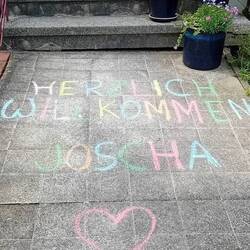 HERZLICH
WILLKOMMEN
JOSCHA